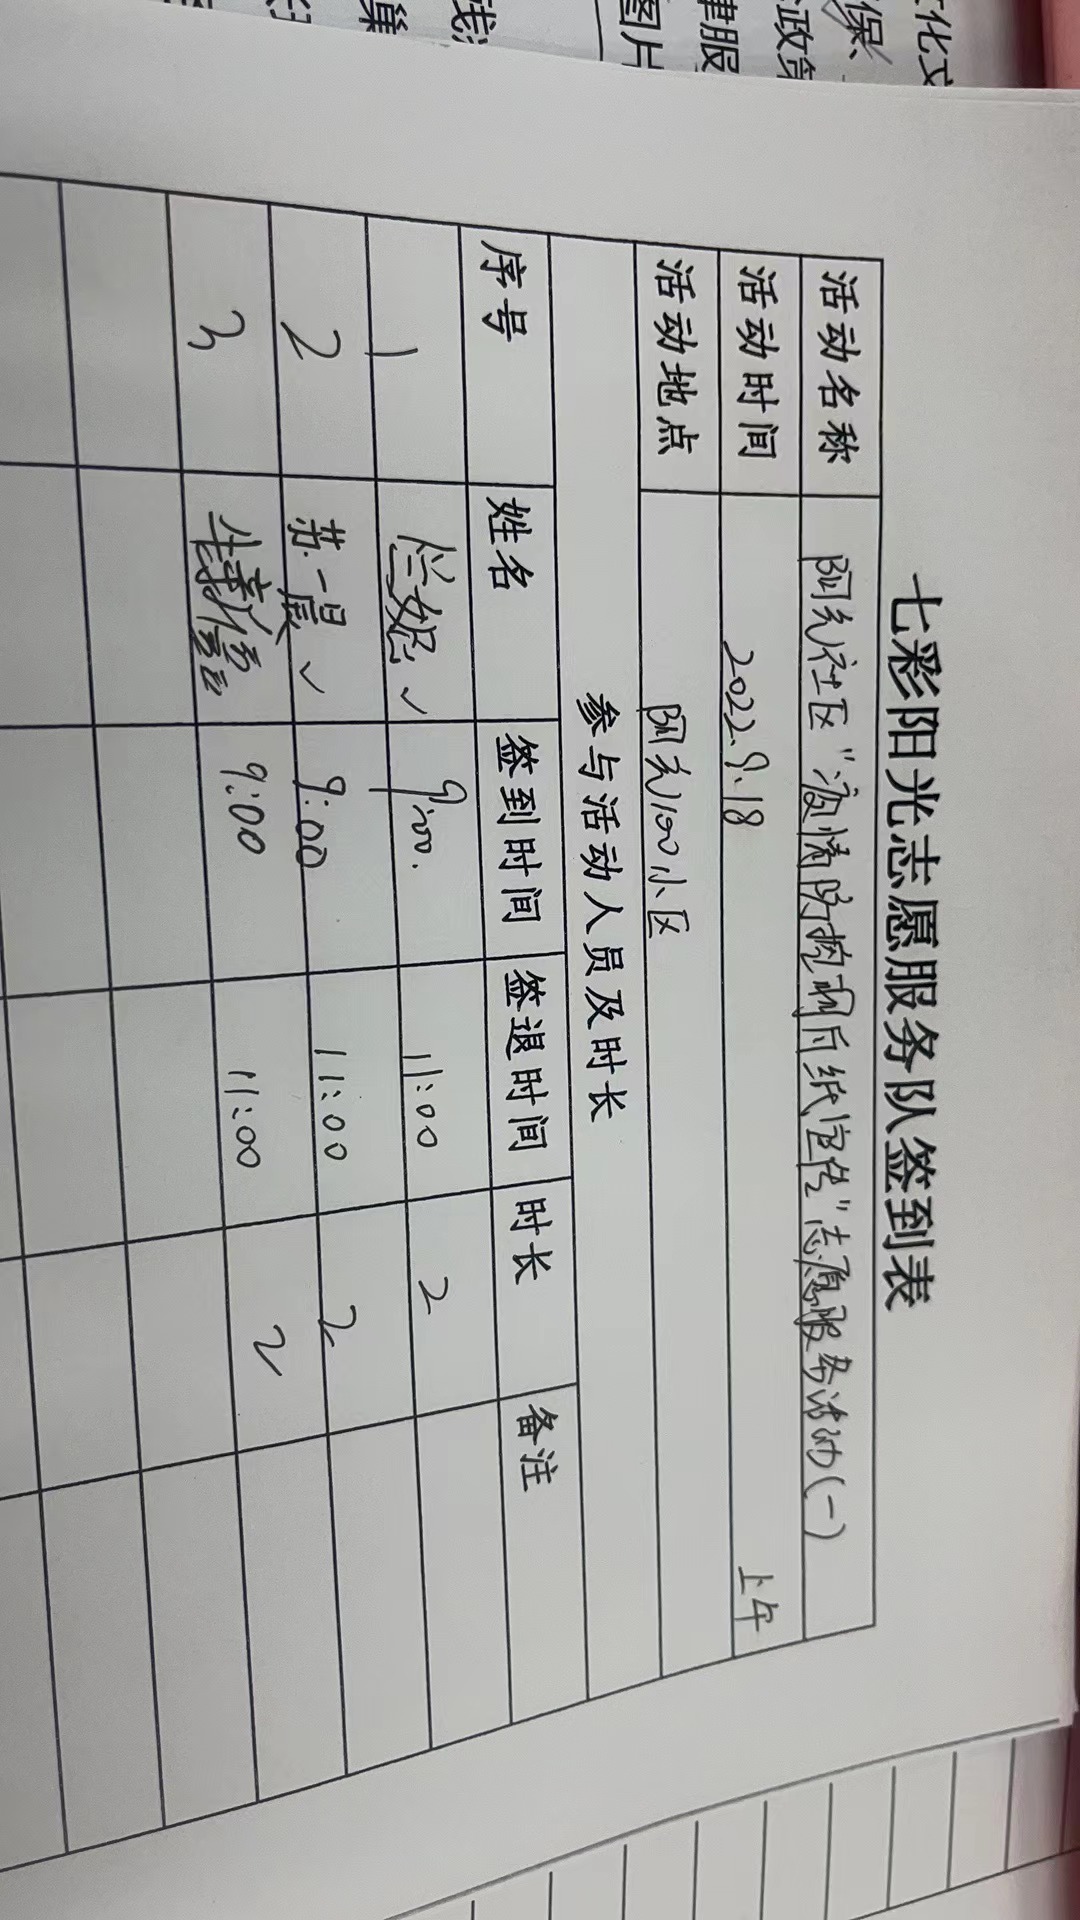 七彩阳光志愿服务队签到表
活动名称 阳光社区"疫情防控明白纸宣传"志愿服务活动(一)
活动时间 2022.9.18 上午
活动地点 阳光100小区
参与活动人员及时长
序号 姓名 签到时间 签退时间 时长 备注
1 9:00. 11:00 2
2 苏一晨 ✓ 9:00 11:00 2
3 9:00 11:00 2
化文
保、
政策
律服
图片